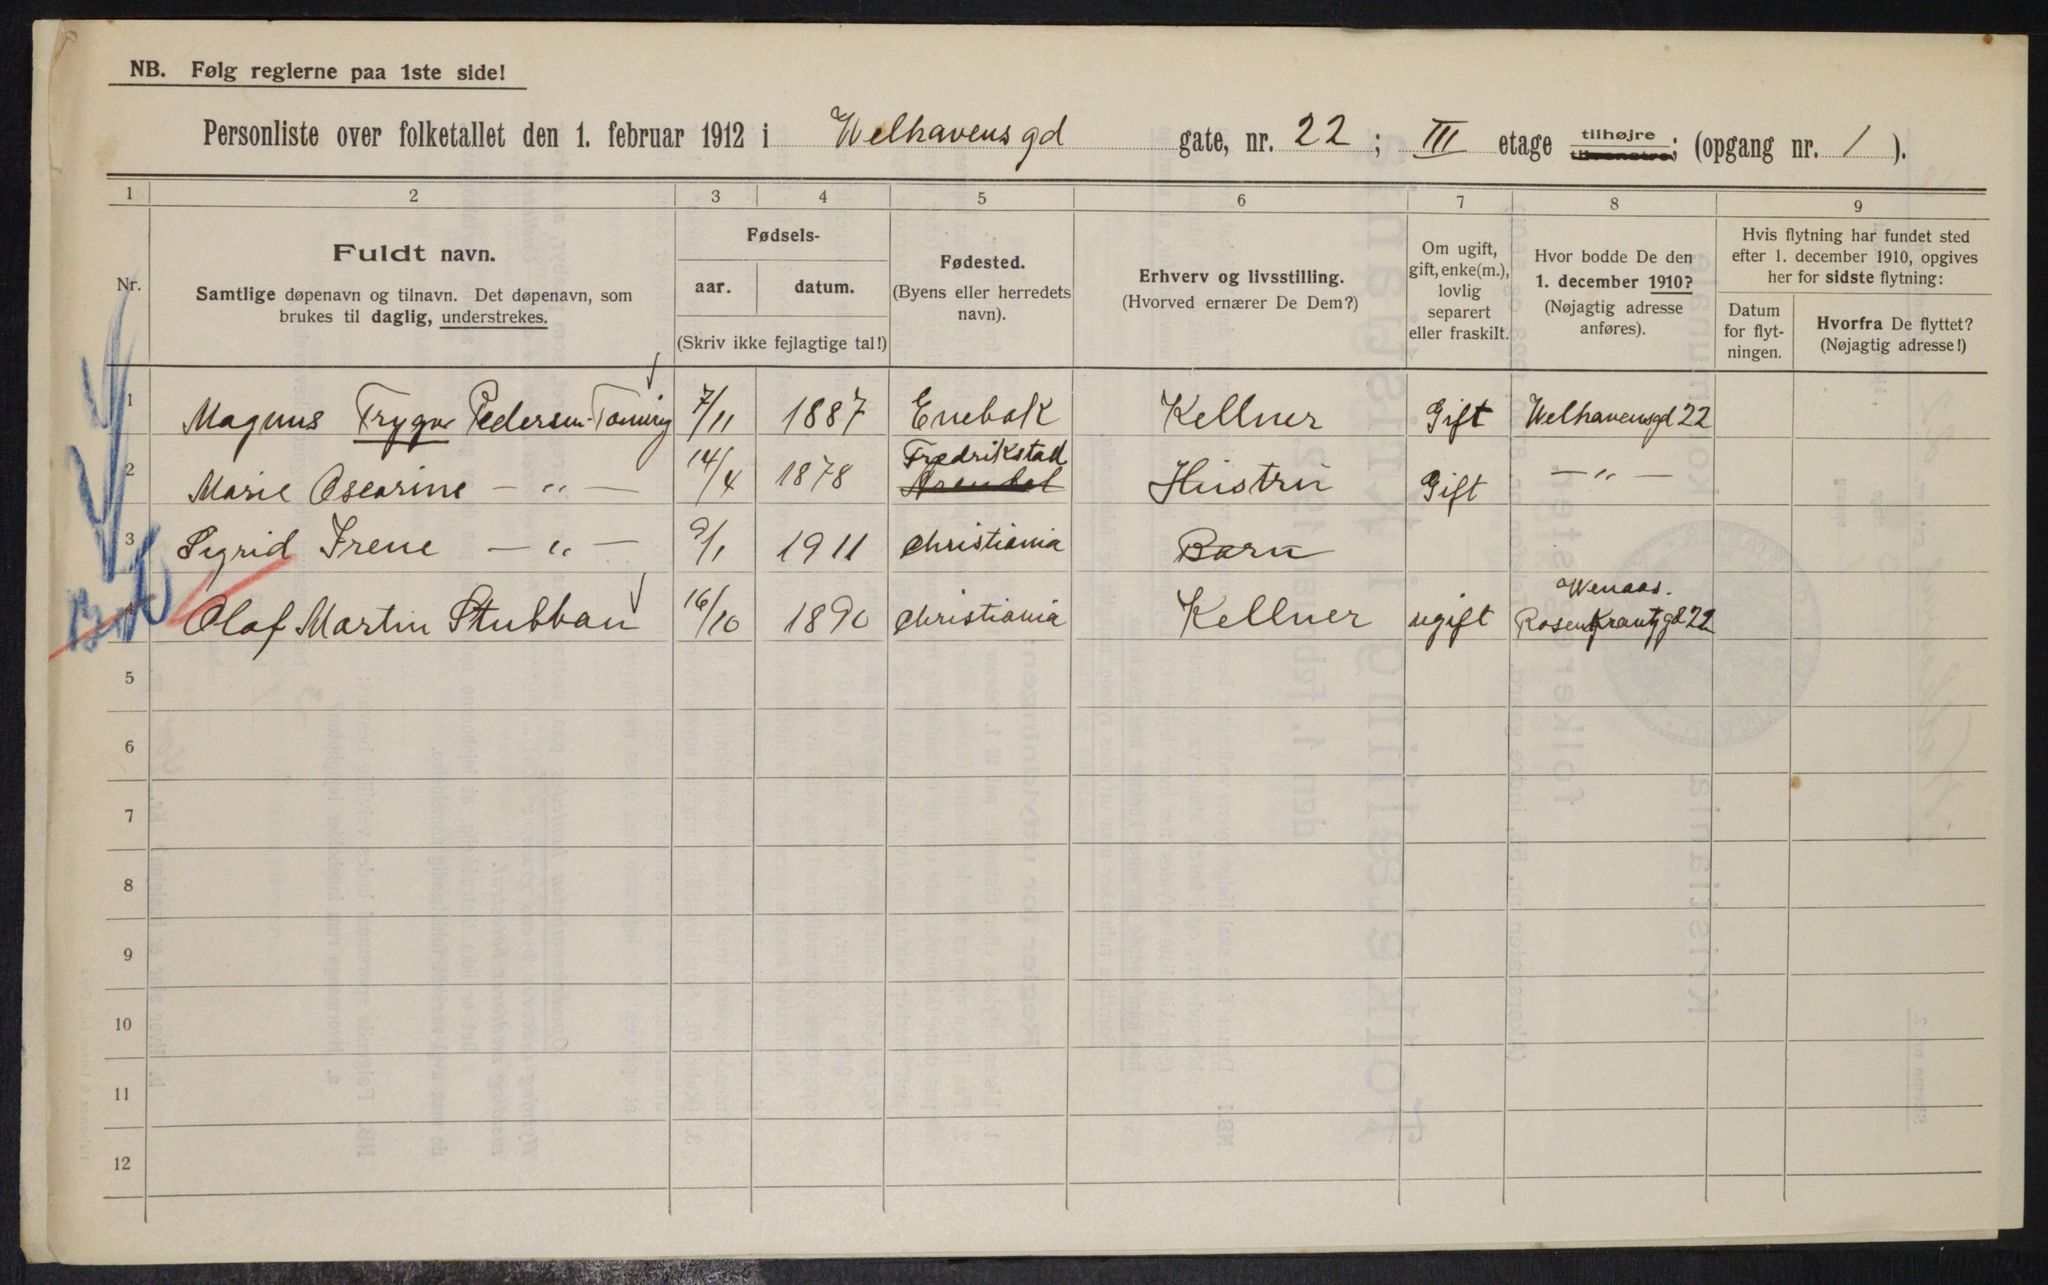 NB. Følg reglerne paa 1ste side!
Personliste over folketallet den 1. februar 1912 i Welhavensgd gate, nr. 22 ; III etage tilhøjre tilvenstre; (opgang nr. 1 ).
1 2 3 4 5 6 7 8 9
Nr.
Fuldt navn.
Samtlige døpenavn og tilnavn. Det døpenavn, som
brukes til daglig, understrekes.
Fødsels-
aar. datum.
(Skriv ikke fejlagtige tal!)
Fødested.
(Byens eller herredets
navn).
Erhverv og livsstilling.
(Hvorved ernærer De Dem?)
Om ugift,
gift, enke(m.),
lovlig
separert
eller fraskilt.
Hvor bodde De den
1. december 1910?
(Nøjagtig adresse
anføres).
Hvis flytning har fundet sted
efter 1. december 1910, opgives
her for sidste flytning:
Datum
for flyt-
ningen.
Hvorfra De flyttet?
(Nøjagtig adresse!)
1 Magnus Trygve Pedersen- 7/11 1887 Enebak Kellner Gift Welhavensgd 22
2 Marie Oscarine — " — 14/4 1878 Fredrikstad Hustru Gift — " —
3 Sigrid Irene — " — 9/1 1911 Christiania Barn
4 Olaf Martin Stubban 16/10 1890 Christiania Kellner ugift Wenaas.
Rosenkrantzgd 22
5
6
7
8
9
10
11
12